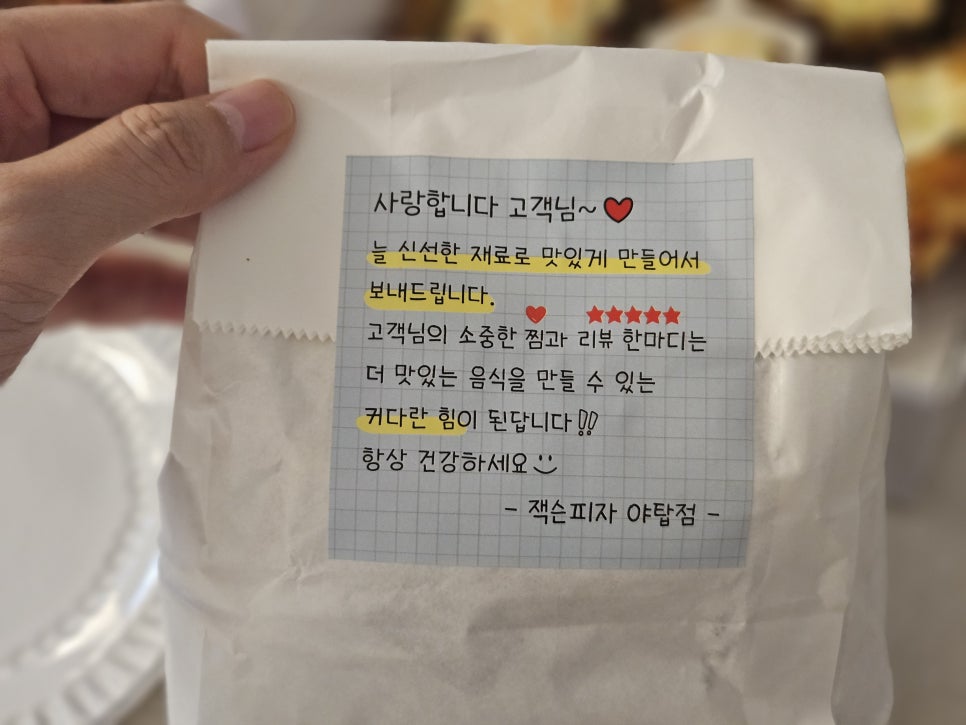 사랑합니다 고객님~
늘 신선한 재료로 맛있게 만들어서
보내드립니다.
고객님의 소중한 찜과 리뷰 한마디는
더 맛있는 음식을 만들 수 있는
커다란 힘이 된답니다!!
항상 건강하세요
- 잭슨피자 야탑점 -